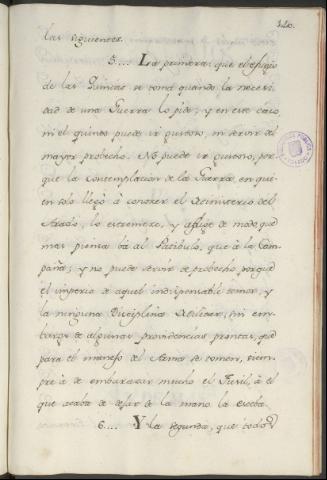 120.
las siguientes.
5.... La primera: que el efugio
de las Quintas se toma quando la necesi-
dad de una Guerra lo pide; y en este caso
ni el quinto puede ir gustoso, ni servir del
mayor probecho. No puede ir gustoso, por-
que la contemplacion de la Guerra, en qui-
en solo llegó à conocer el Ministerio del
Arado, lo estremece, y aflige de modo que
mas piensa bá al Patibulo, que à la Cam-
paña; y no puede servir de probecho porque
el imperio de aquel indispensable temor, y
la ninguna Disciplina Militar, sin em-
bargo de algunas providencias prontas, que
para el manejo del Arma se tomen, siem-
pre à de embarazar mucho el Fusil, à el
que acaba de dejar de la mano la esteba.
6.... Y la segunda, que todos